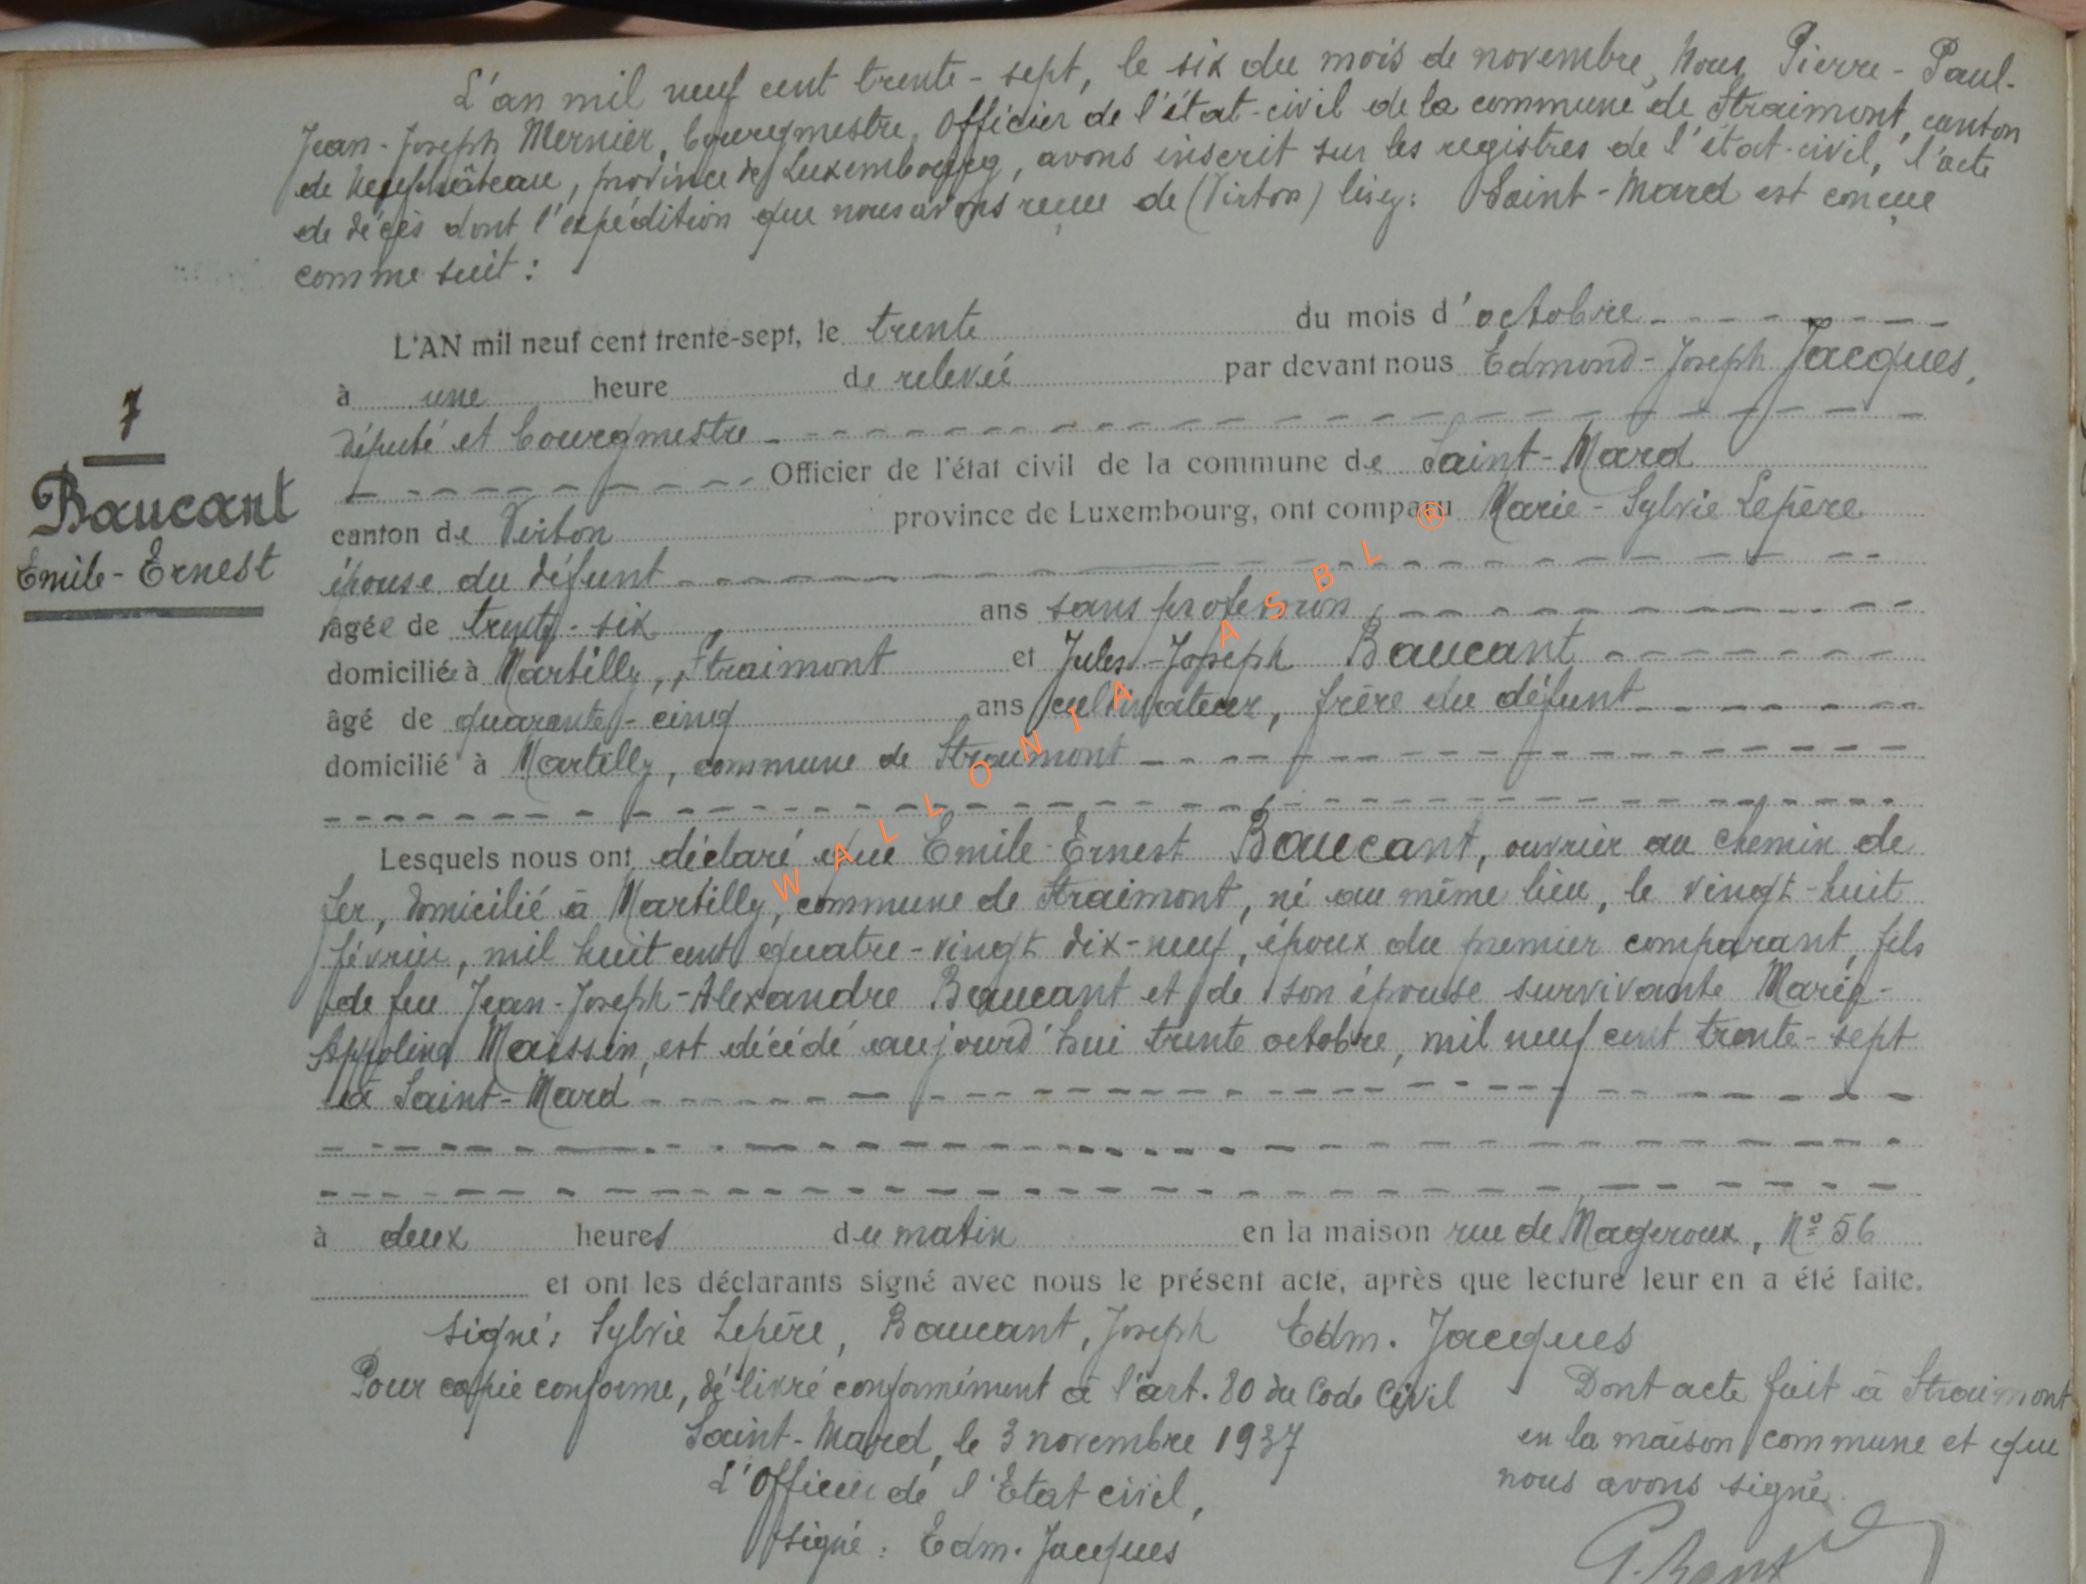 L'an mil neuf cent trente-sept, le six du mois de novembre, Nous Pierre-Paul-
Jean-Joseph Mernier, bourgmestre, Officier de l'état-civil de la commune de Straimont, canton
de Neufchâteau, province de Luxembourg, avons inscrit sur les registres de l'état-civil, l'acte
de décès dont l'expédition que nous avons reçue de (Virton) lisez: Saint-Mard est conçue
comme suit:
L'AN mil neuf cent trente-sept, le trente du mois d'octobre
à une heure de relevée par devant nous Edmond-Joseph Jacques,
député et bourgmestre
Officier de l'état civil de la commune de Saint-Mard
canton de Virton province de Luxembourg, ont comparu Marie-Sylvie Lepère
épouse du défunt
âgée de trente-six ans sans profession,
domiciliée à Martilly, Straimont et Jules-Joseph Baucant
âgé de quarante-cinq ans cultivateur, frère du défunt
domicilié à Martilly, commune de Straimont
Lesquels nous ont déclaré que Emile-Ernest Baucant, ouvrier au chemin de
fer, domicilié à Martilly, commune de Straimont, né au même lieu, le vingt-huit
février, mil huit cent quatre-vingt dix-neuf, époux du premier comparant, fils
de feu Jean-Joseph-Alexandre Baucant et de son épouse survivante Marie-
Appolina Maissin, est décédé aujourd'hui trente octobre, mil neuf cent trente-sept
à Saint-Mard
à deux heures du matin en la maison rue de Mageroux, N° 56
et ont les déclarants signé avec nous le présent acte, après que lecture leur en a été faite.
signé: Sylvie Lepère, Baucant, Joseph Edm. Jacques
Pour copie conforme, délivré conformément à l'art. 80 du Code Civil
Saint-Mard, le 3 novembre 1937
L'Officier de l'Etat civil,
signé: Edm. Jacques
Dont acte fait à Straimont
en la maison commune et que
nous avons signé
7
Baucant
Emile-Ernest
WALLONIA ASBL ®